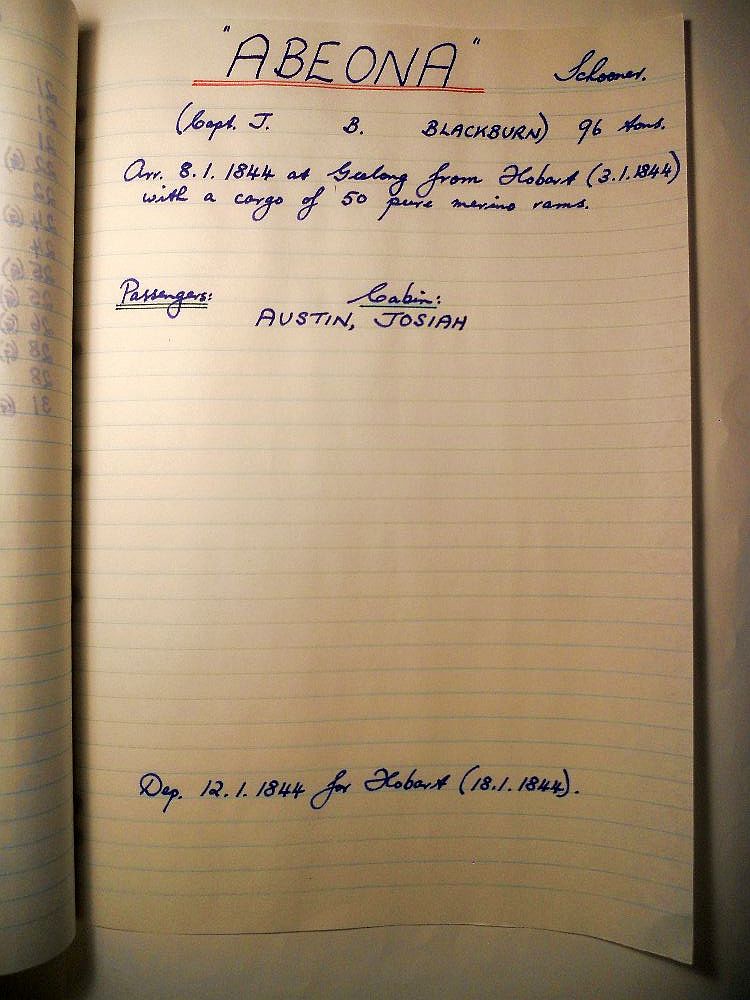 "ABEONA" Schooner.
(Capt. J. B. BLACKBURN) 96 tons.
Arr. 8.1.1844 at Geelong from Hobart (3.1.1844)
with a cargo of 50 pure merino rams.
Passengers: Cabin:
AUSTIN, JOSIAH
Dep. 12.1.1844 for Hobart (18.1.1844).